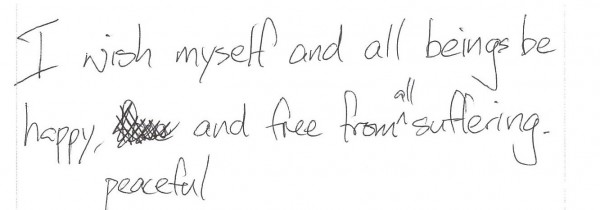 I wish myself and all beings be
happy, and free from all suffering.
peaceful